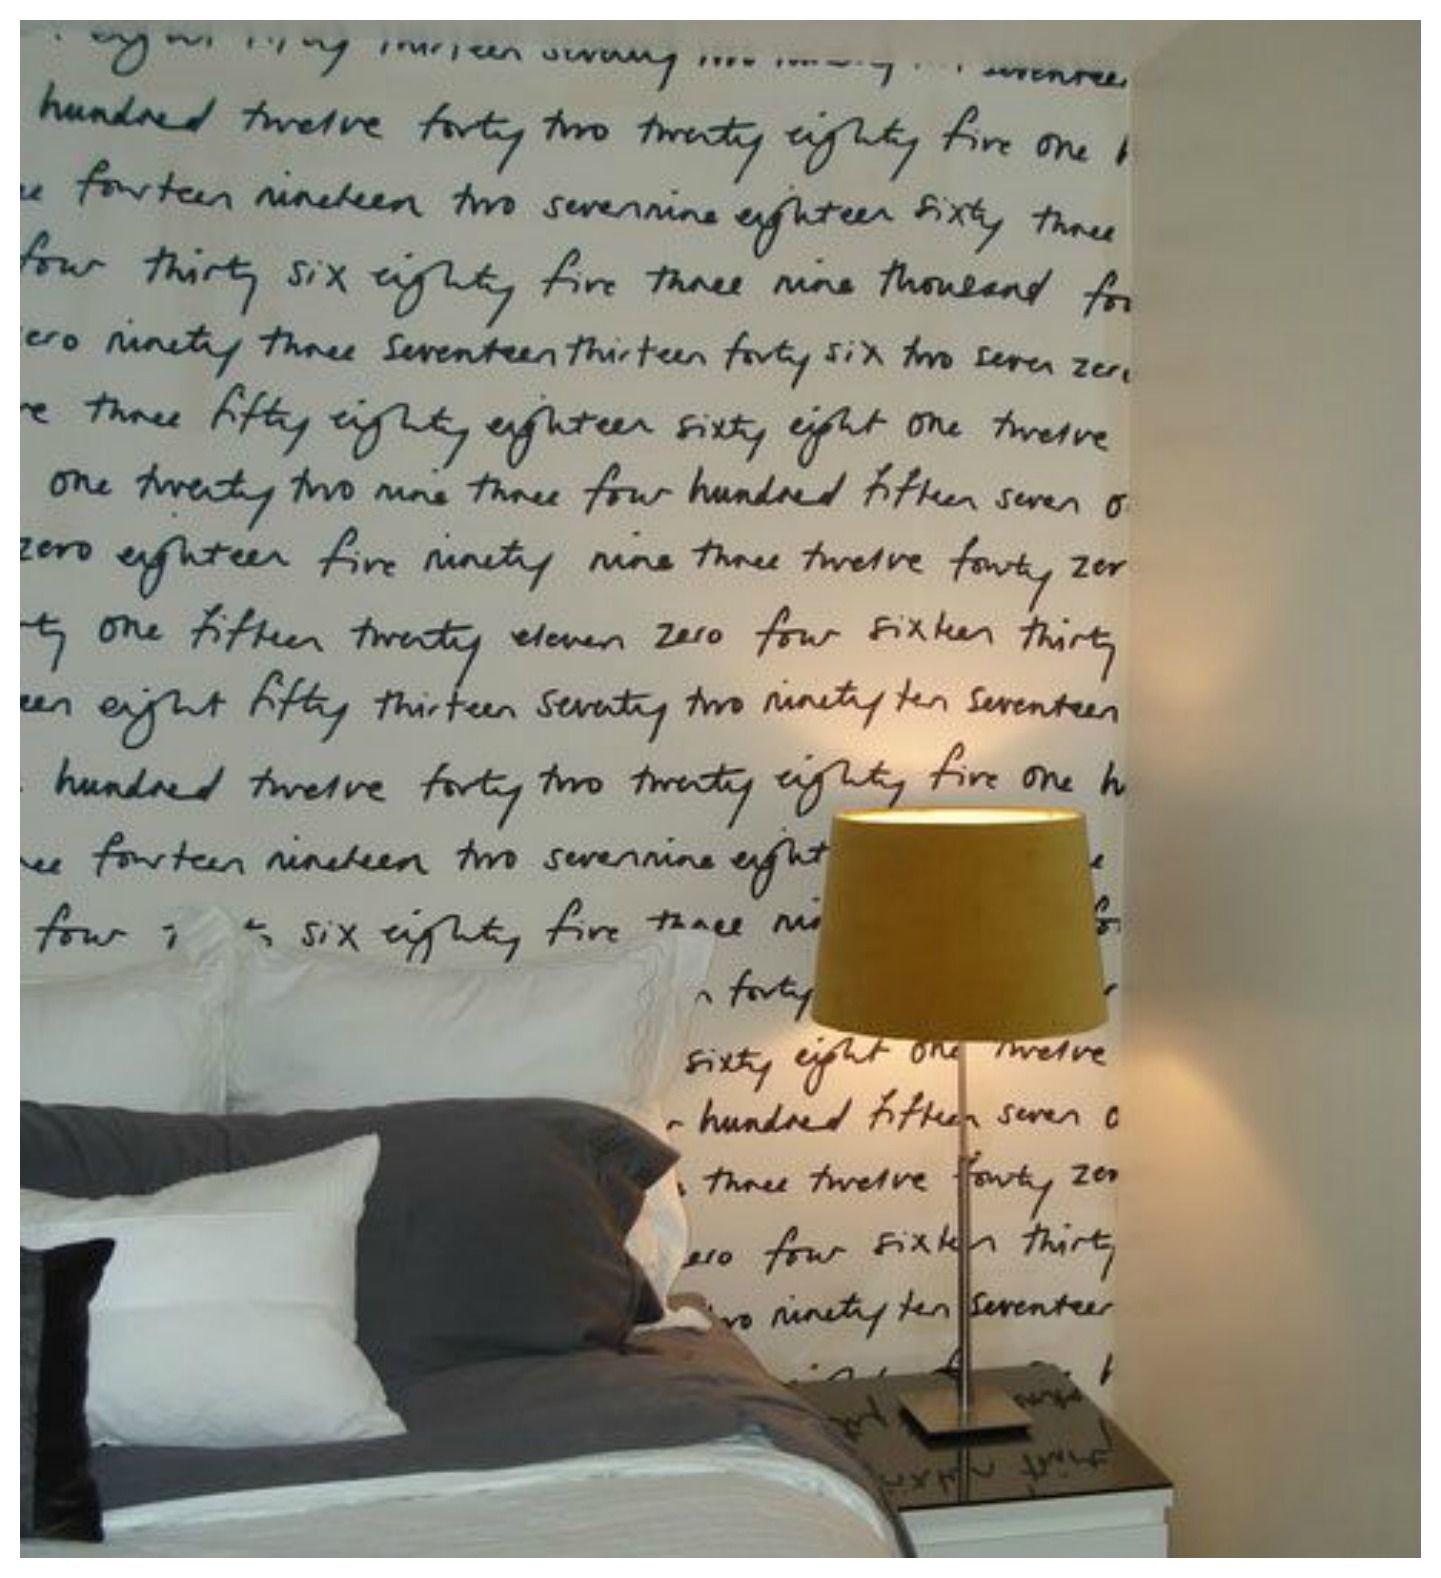 thirteen seventy two seventeen
hundred twelve forty two twenty eighty five one
fourteen nineteen two seven nine eighteen sixty three
four thirty six eighty five three nine thousand
ninety three seventeen thirteen forty six two seven
three fifty eighty eighteen sixty eight one twelve
one twenty two nine three four hundred fifteen seven
zero eighteen five ninety nine three twelve fourty
one fifteen twenty eleven zero four sixteen thirty
eight fifty thirteen seventy two ninety ten seventeen
hundred twelve forty two twenty eighty five one
fourteen nineteen two seven nine
four six eighty five three
forty
sixty eight one twelve
hundred fifteen seven
three twelve fourty
four sixteen thirty
ninety ten seventeen